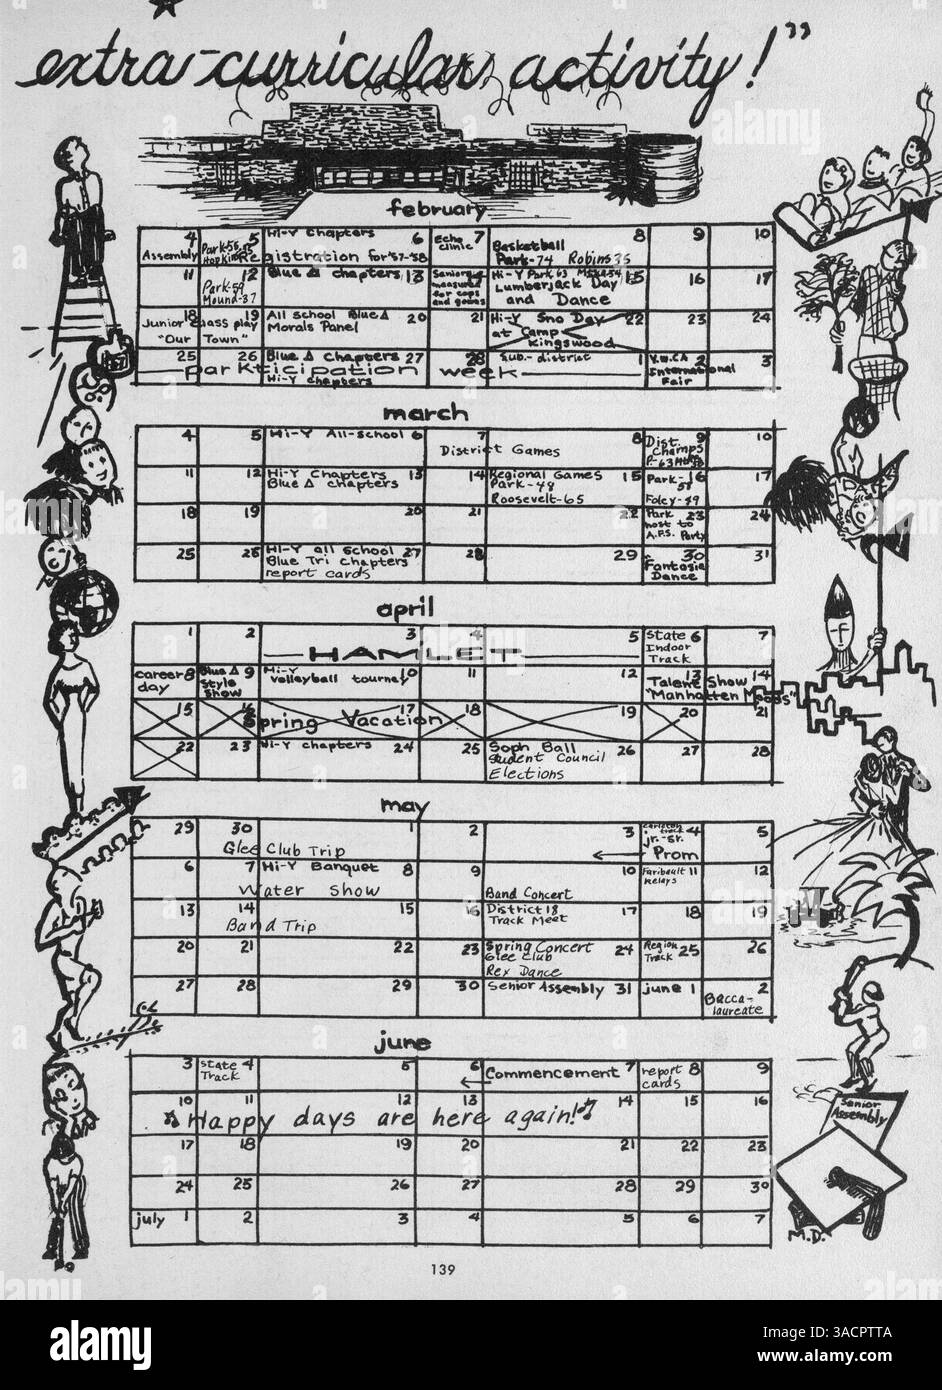 extra-curricular activity!"
february
4 Assembly
5 Park-56 Hopkins-55
6 Hi-Y Chapters
Registration for '57-'58
7 Echo clinic
8 Basketball
Park-74 Robins 35
9
10
11
12 Park-59
Mound-37
13 Blue Δ chapters
14 Seniors measured for caps and gowns
15 Hi-Y Park 63
Lumberjack Day and Dance
16
17
18 19 Junior class play
"Our Town"
20 All school Blue Δ
Morals Panel
21
22 Hi-Y Sno Day
at Camp Kingswood
23
24
25
26
27 Blue Δ Chapters
Hi-Y chapters
28
parkticipation week
1 Sub.-district
2 Y.W.CA International Fair
3
march
4
5
6 Hi-Y All-school
7
8
District Games
9 Dist. Champs
10
11
12
13 Hi-Y Chapters
Blue Δ chapters
14
15 Regional Games
Park-48
Roosevelt-65
16 Park-
Foley-59
17
18
19
20
21
22
23 Park host to A.F.S. Party
24
25
26
27 Hi-Y all school
Blue Tri chapters
report cards
28
29
30 Fantasia Dance
31
april
1
2
3
4
5
HAMLET
6 State Indoor Track
7
8 career day
9 Blue Δ Style Show
10 Hi-Y volleyball tourney
11
12
13 14 Talent Show
"Manhatten Moods"
15
16
17
18
19
20
21
Spring Vacation
22
23
24 Hi-Y chapters
25
26 Soph Ball
Student Council
Elections
27
28
may
29
30
Glee Club Trip
1
2
3
4 Carleton track
jr.-sr.
Prom
5
6
7
8 Hi-Y Banquet
Water Show
9
10 Band Concert
11 Faribault Relays
12
13
14
15
Band Trip
16
17 District 18
Track Meet
18
19
20
21
22
23
24 Spring Concert
Glee Club
Rex Dance
25 Region Track
26
27
28
29
30
31 Senior Assembly
june 1
2 Bacca-
laureate
june
3
4 State Track
5
6
7 Commencement
8 report cards
9
10 11 12 13 14 15 16
Happy days are here again!
17 18 19 20 21 22 23
24 25 26 27 28 29 30
july 1 2 3 4 5 6 7
Senior Assembly
M.D.
139
alamy
Image ID: 3ACPTTA
www.alamy.com